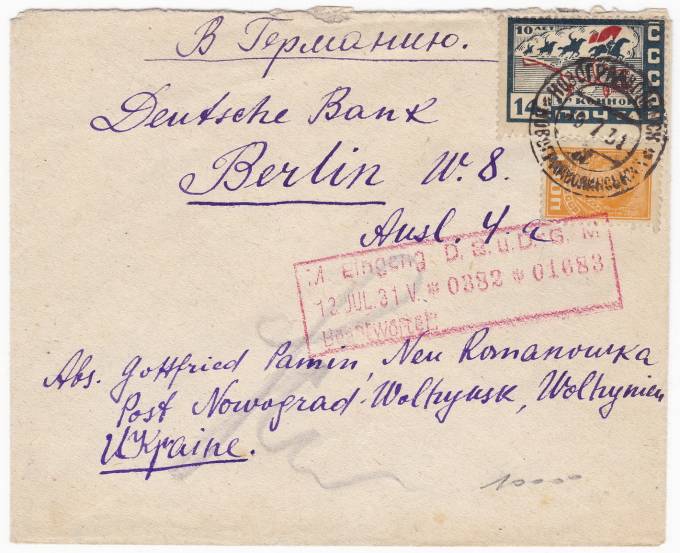 В Германию.
10 ЛЕТ
СССР
14
Deutsche Bank
Berlin W. 8.
Ausl. 4. a
M. Eingang D. B. u. D. G. M
13 JUL. 31 V. * 0382 * 01683
Beantwortet:
Abs. Gottfried Pamin, Neu Romanowka
Post Nowograd-Wolhynsk, Wolhynien
Ukraine.